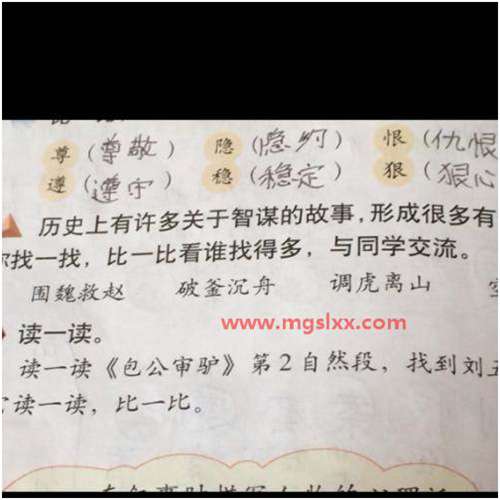 尊（尊敬） 隐（隐约） 恨（仇恨
遵（遵守） 稳（稳定） 狠（狠心
历史上有许多关于智谋的故事，形成很多有
你找一找，比一比看谁找得多，与同学交流。
围魏救赵 破釜沉舟 调虎离山
www.mgslxx.com
读一读。
读一读《包公审驴》第2自然段，找到刘五
读一读，比一比。